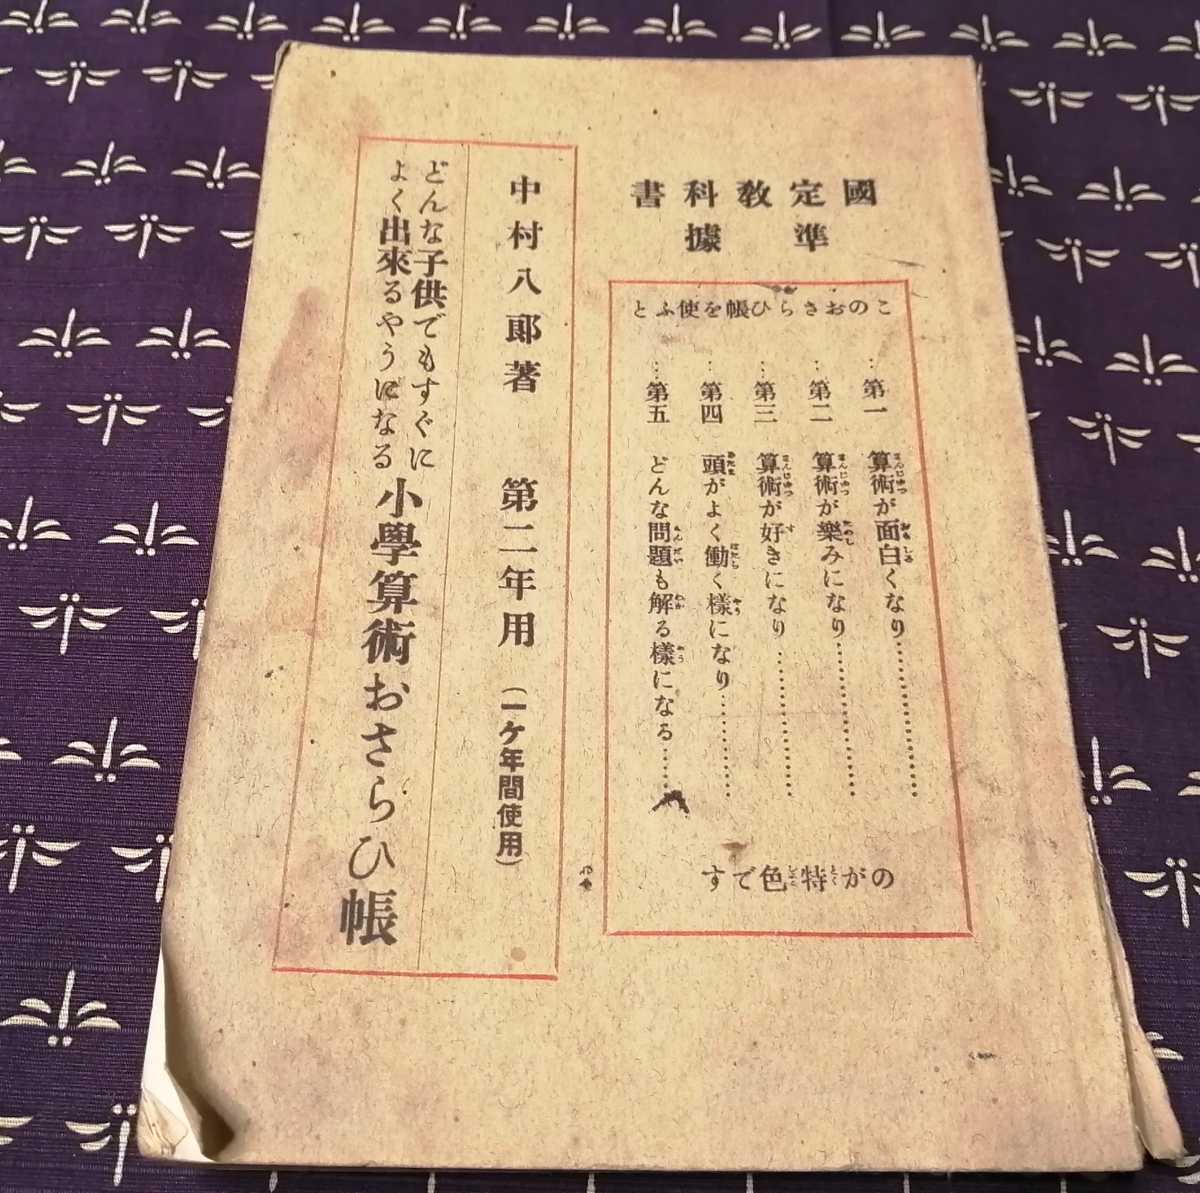 國定教科書
準據
このおさらひ帳を使ふと
第一 算術が面白くなり……………
第二 算術が樂みになり……………
第三 算術が好きになり……………
第四 頭がよく働く樣になり…………
第五 どんな問題も解る樣になる……
のが特色です
中村八郎著 第二年用 (一ケ年間使用)
どんな子供でもすぐに
よく出來るやうになる
小學算術おさらひ帳